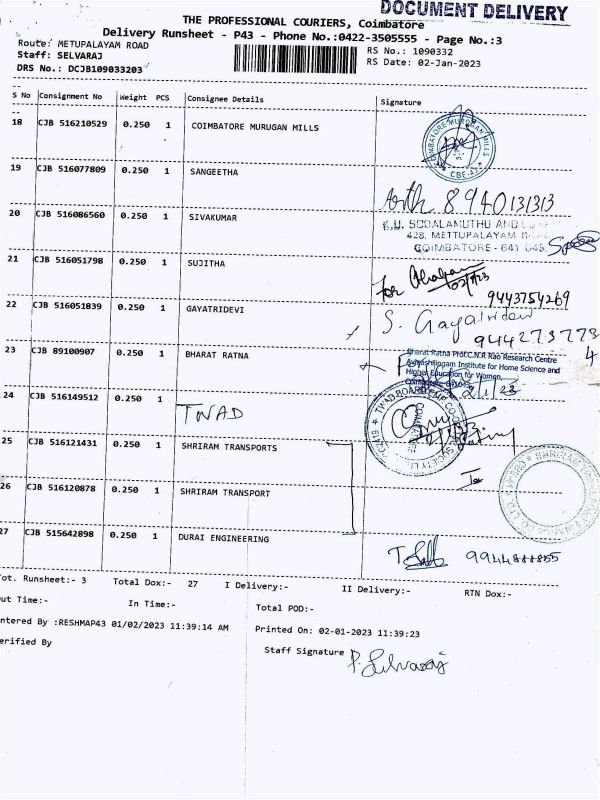 DOCUMENT DELIVERY
THE PROFESSIONAL COURIERS, Coimbatore
Delivery Runsheet - P43 - Phone No.:0422-3505555 - Page No.:3
Route: METUPALAYAM ROAD
RS No.: 1090332
Staff: SELVARAJ
RS Date: 02-Jan-2023
DRS No.: DCJB109033203
S No Consignment No Weight PCS Consignee Details Signature
18 CJB 516210529 0.250 1 COIMBATORE MURUGAN MILLS
COIMBATORE MURUGAN MILLS
19 CJB 516077809 0.250 1 SANGEETHA
8940131313
20 CJB 516086560 0.250 1 SIVAKUMAR
428, METTUPALAYAM
COIMBATORE - 641 045
21 CJB 516051798 0.250 1 SUJITHA
for
9443754269
22 CJB 516051839 0.250 1 GAYATRIDEVI
S. Gayatridevi
23 CJB 89100907 0.250 1 BHARAT RATNA
Bharat Ratna Prof.C.N.R Rao Research Centre
Avinashilingam Institute for Home Science and
Higher Education for Women,
2/1/23
24 CJB 516149512 0.250 1 TWAD
TWAD BOARD
25 CJB 516121431 0.250 1 SHRIRAM TRANSPORTS
SHRIRAM
26 CJB 516120878 0.250 1 SHRIRAM TRANSPORT
27 CJB 515642898 0.250 1 DURAI ENGINEERING
9944888855
Tot. Runsheet:- 3 Total Dox:- 27 I Delivery:- II Delivery:- RTN Dox:-
Out Time:- In Time:- Total POD:-
Entered By :RESHMAP43 01/02/2023 11:39:14 AM Printed On: 02-01-2023 11:39:23
Verified By Staff Signature P. Selvaraj